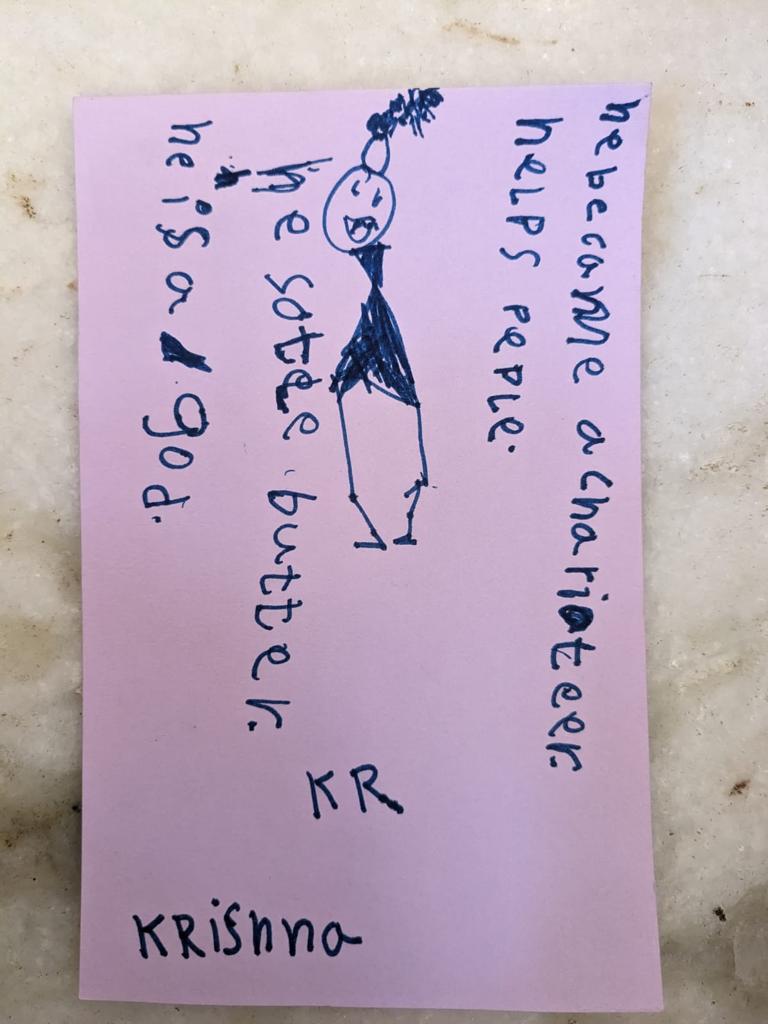 he became a charioteer.
helps peple.
he butter.
he is a god.
KR
KRishna